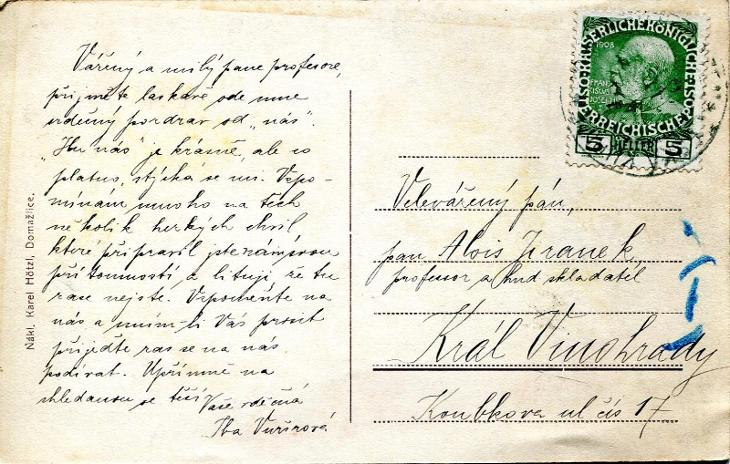 Vážený a milý pane profesore,
přijměte laskavě ode mne
srdečný pozdrav od „nás".
„Hu nás" je krásně, ale co
platno, stýská se mi. Vzpo-
mínám mnoho na těch
několik hezkých chvil
které připravil jste nám svou
přítomností, a lituji že tu
zase nejste. Vzpomeňte na
nás a umím-li Vás prosit
přijeďte zas se na nás
podívat. Upřímně na
shledanou se těší
Vaše vděčná
Nákl. Karel Hötzl, Domažlice.
KAISERLICHE KÖNIGLICHE
ÖSTERREICHISCHE POST
1908
5 HELLER 5
Velevážený pán,
pan Alois Jiránek,
professor a hud skladatel
Král Vinohrady
Koubkova ul čís 17.